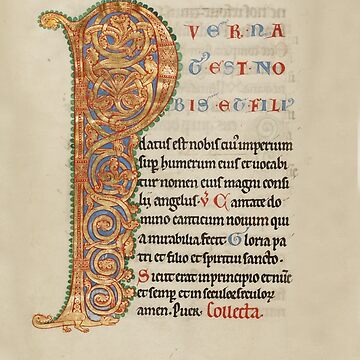 P VERNA
TEST·NO
BIS·ETFILI
datus est nobis cui' imperium
sup humerum eius et uocabi
tur nomen eius magni consi
lii angelus. V Cantate do
mino canticum nouum qui
a mirabilia fecit Gloria pa
tri et filio et spiritui sancto.
Sicut erat inprincipio et nūc
et semper et in seculoseculor
amen. Puer. Collecta.